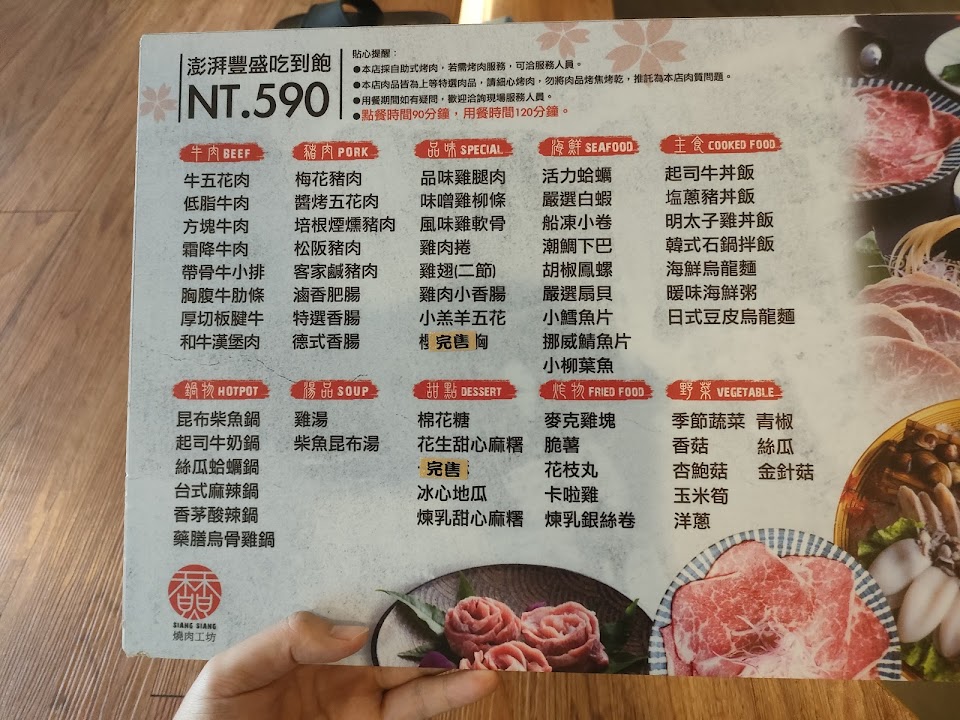 澎湃豐盛吃到飽
NT.590
貼心提醒：
●本店採自助式烤肉，若需烤肉服務，可洽服務人員。
●本店肉品皆為上等特選肉品，請細心烤肉，勿將肉品烤焦烤乾，推託為本店肉質問題。
●用餐期間如有疑問，歡迎洽詢現場服務人員。
●點餐時間90分鐘，用餐時間120分鐘。
牛肉 BEEF
牛五花肉
低脂牛肉
方塊牛肉
霜降牛肉
帶骨牛小排
胸腹牛肋條
厚切板腱牛
和牛漢堡肉
豬肉 PORK
梅花豬肉
醬烤五花肉
培根煙燻豬肉
松阪豬肉
客家鹹豬肉
滷香肥腸
特選香腸
德式香腸
品味 SPECIAL
品味雞腿肉
味噌雞柳條
風味雞軟骨
雞肉捲
雞翅(二節)
雞肉小香腸
小羔羊五花
完售 胸
海鮮 SEAFOOD
活力蛤蠣
嚴選白蝦
船凍小卷
潮鯛下巴
胡椒鳳螺
嚴選扇貝
小鱈魚片
挪威鯖魚片
小柳葉魚
主食 COOKED FOOD
起司牛丼飯
塩蔥豬丼飯
明太子雞丼飯
韓式石鍋拌飯
海鮮烏龍麵
暖味海鮮粥
日式豆皮烏龍麵
鍋物 HOTPOT
昆布柴魚鍋
起司牛奶鍋
絲瓜蛤蠣鍋
台式麻辣鍋
香茅酸辣鍋
藥膳烏骨雞鍋
湯品 SOUP
雞湯
柴魚昆布湯
甜點 DESSERT
棉花糖
花生甜心麻糬
完售
冰心地瓜
煉乳甜心麻糬
炸物 FRIED FOOD
麥克雞塊
脆薯
花枝丸
卡啦雞
煉乳銀絲卷
野菜 VEGETABLE
季節蔬菜 青椒
香菇 絲瓜
杏鮑菇 金針菇
玉米筍
洋蔥
SIANG SIANG
燒肉工坊